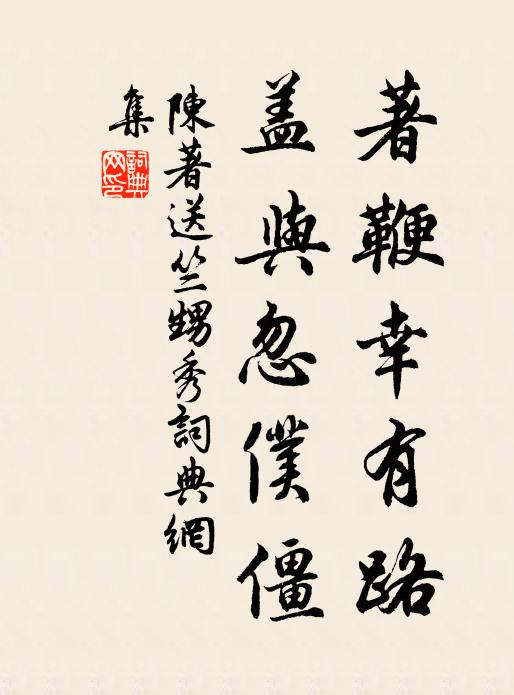 著鞭幸有路
盖與忽僕僵
陳著送竺甥秀詞典網
集
詞典
网印